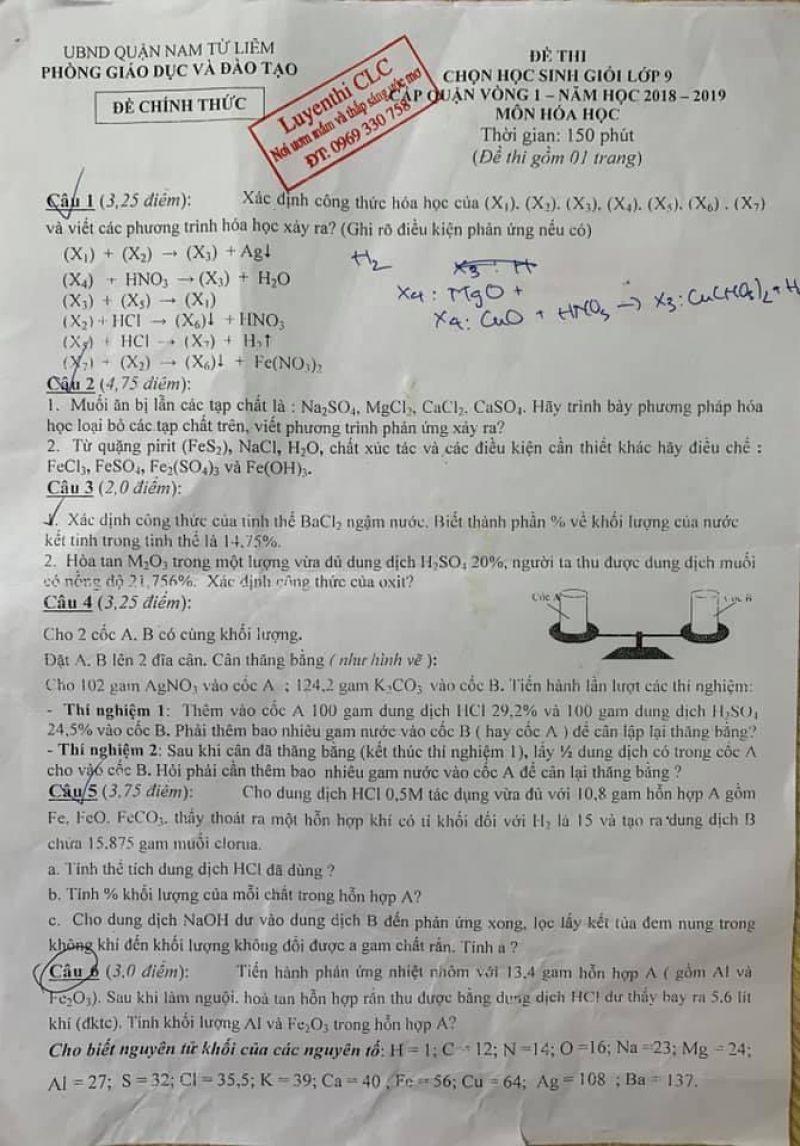 UBND QUẬN NAM TỪ LIÊM
PHÒNG GIÁO DỤC VÀ ĐÀO TẠO
ĐỀ CHÍNH THỨC
Luyenthi CLC
Nơi ươm mầm và thắp sáng ước mơ
ĐT: 0969 330 758
ĐỀ THI
CHỌN HỌC SINH GIỎI LỚP 9
CẤP QUẬN VÒNG 1 – NĂM HỌC 2018 – 2019
MÔN HÓA HỌC
Thời gian: 150 phút
(Đề thi gồm 01 trang)
Câu 1 (3,25 điểm): Xác định công thức hóa học của (X₁). (X₂). (X₃), (X₄). (X₅). (X₆) . (X₇)
và viết các phương trình hóa học xảy ra? (Ghi rõ điều kiện phản ứng nếu có)
(X₁) + (X₂) → (X₃) + Ag↓
(X₄) + HNO₃ → (X₃) + H₂O
(X₃) + (X₅) → (X₁)
(X₂) + HCl → (X₆)↓ + HNO₃
(X₅) + HCl → (X₇) + H₂↑
(X₇) + (X₂) → (X₆)↓ + Fe(NO₃)₂
H₂
X₃ : H
X₄ : MgO +
X₄ : CuO + HNO₃ → X₃ : Cu(NO₃)₂ + H
Câu 2 (4,75 điểm):
1. Muối ăn bị lẫn các tạp chất là : Na₂SO₄, MgCl₂, CaCl₂. CaSO₄. Hãy trình bày phương pháp hóa
học loại bỏ các tạp chất trên, viết phương trình phản ứng xảy ra?
2. Từ quặng pirit (FeS₂), NaCl, H₂O, chất xúc tác và các điều kiện cần thiết khác hãy điều chế :
FeCl₃, FeSO₄, Fe₂(SO₄)₃ và Fe(OH)₃.
Câu 3 (2,0 điểm):
1. Xác định công thức của tinh thể BaCl₂ ngậm nước. Biết thành phần % về khối lượng của nước
kết tinh trong tinh thể là 14,75%.
2. Hòa tan M₂O₃ trong một lượng vừa đủ dung dịch H₂SO₄ 20%, người ta thu được dung dịch muối
có nồng độ 21,756%. Xác định công thức của oxit?
Câu 4 (3,25 điểm):
Cốc A
Cốc B
Cho 2 cốc A. B có cùng khối lượng.
Đặt A. B lên 2 đĩa cân. Cân thăng bằng ( như hình vẽ ):
Cho 102 gam AgNO₃ vào cốc A ; 124,2 gam K₂CO₃ vào cốc B. Tiến hành lần lượt các thí nghiệm:
- Thí nghiệm 1: Thêm vào cốc A 100 gam dung dịch HCl 29,2% và 100 gam dung dịch H₂SO₄
24,5% vào cốc B. Phải thêm bao nhiêu gam nước vào cốc B ( hay cốc A ) để cân lập lại thăng bằng?
- Thí nghiệm 2: Sau khi cân đã thăng bằng (kết thúc thí nghiệm 1), lấy ½ dung dịch có trong cốc A
cho vào cốc B. Hỏi phải cần thêm bao nhiêu gam nước vào cốc A để cân lại thăng bằng ?
Câu 5 (3,75 điểm): Cho dung dịch HCl 0,5M tác dụng vừa đủ với 10,8 gam hỗn hợp A gồm
Fe, FeO, FeCO₃. thấy thoát ra một hỗn hợp khí có tỉ khối đối với H₂ là 15 và tạo ra dung dịch B
chứa 15.875 gam muối clorua.
a. Tính thể tích dung dịch HCl đã dùng ?
b. Tính % khối lượng của mỗi chất trong hỗn hợp A?
c. Cho dung dịch NaOH dư vào dung dịch B đến phản ứng xong, lọc lấy kết tủa đem nung trong
không khí đến khối lượng không đổi được a gam chất rắn. Tính a ?
Câu 6 (3,0 điểm): Tiến hành phản ứng nhiệt nhôm với 13,4 gam hỗn hợp A ( gồm Al và
Fe₂O₃). Sau khi làm nguội, hoà tan hỗn hợp rắn thu được bằng dung dịch HCl dư thấy bay ra 5,6 lít
khí (đktc). Tính khối lượng Al và Fe₂O₃ trong hỗn hợp A?
Cho biết nguyên tử khối của các nguyên tố: H = 1; C = 12; N =14; O =16; Na =23; Mg = 24;
Al = 27; S = 32; Cl = 35,5; K = 39; Ca = 40 , Fe = 56; Cu = 64; Ag = 108 ; Ba = 137.